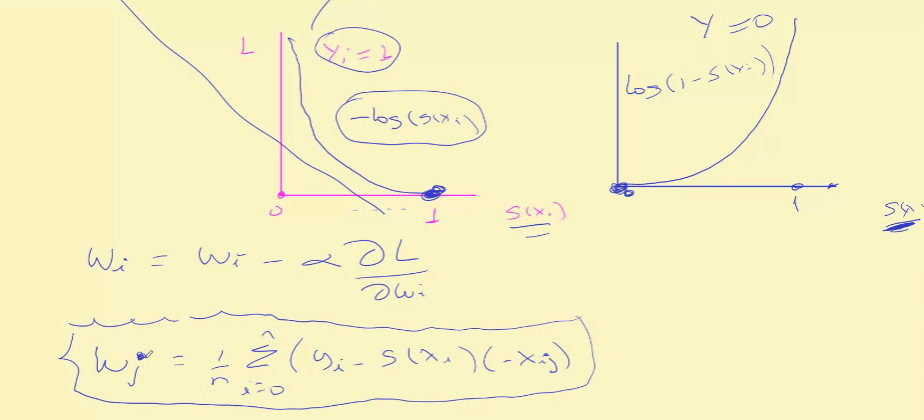 L
Yi = 1
-log(s(xi)
0
1
s(xi)
Y = 0
log(1 - s(xi))
1
s(x
Wi = Wi - α ∂L/∂wi
Wj = 1/n Σ n i=0 (yi - s(xi)(-xij)